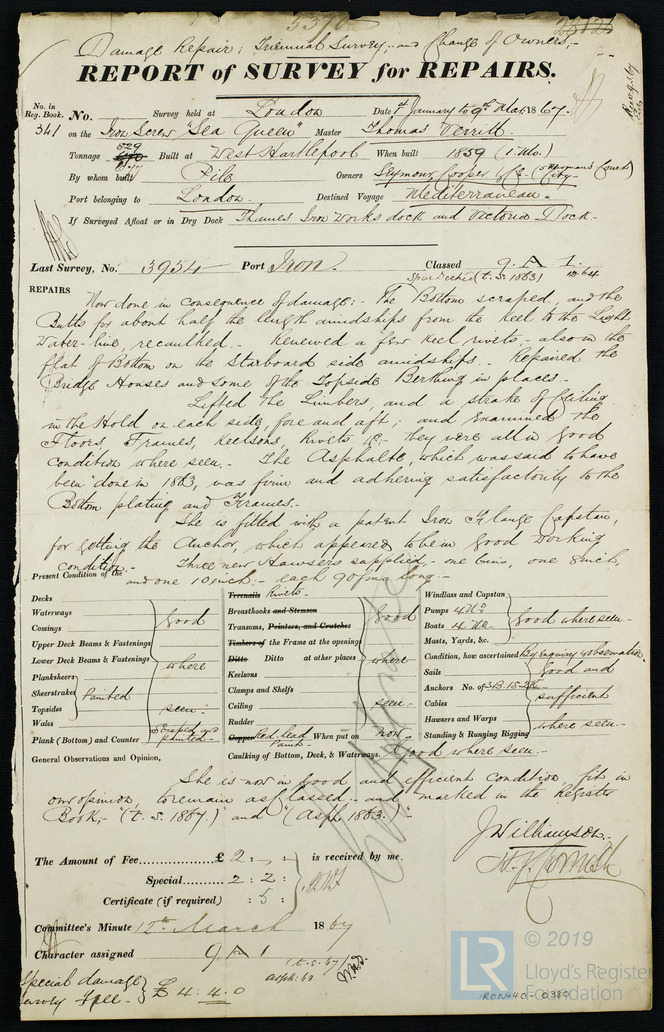 Damage Repair; Triennial Survey; and Change of Owners,-
REPORT of SURVEY for REPAIRS.
No. in Reg. Book. No. Survey held at London Date 1st January to 9th Mar. 1867.
341 on the Iron Screw "Sea Queen" Master Thomas Terrill
Tonnage 829 Built at West Hartlepool When built 1859 (1.Mo.)
By whom built Pile Owners Seymour, Cooper & Co.
Port belonging to London. Destined Voyage Mediterranean.
If Surveyed Afloat or in Dry Dock Thames Iron Works dock and Victoria Dock.-
Last Survey, No. 3954 Port Iron. Classed 9. A 1.
Spar Decked (t.s. 1863)
REPAIRS Now done in consequence of damage:- The Bottom scraped, and the
Butts for about half the length amidships from the keel to the Light
Water-line recaulked.- Renewed a few keel rivets- also in the
flat of Bottom on the Starboard side amidships.- Repaired the
Bridge Houses and some of the Topside Berthing in places.-
Lifted the Limbers, and a strake of Ceiling
in the Hold on each side, fore and aft; and Examined the
Floors, Frames, Keelsons, Rivets &c- they were all in Good
Condition where seen.- The Asphalte, which was said to have
been done in 1863, was firm and adhering satisfactorily to the
Bottom plating and Frames.-
She is fitted with a patent Iron Flange Capstan,
for getting the Anchor, which appeared to be in Good Working
Condition.- Three new Hawsers supplied,- one 6 ins, one 8 inch,
and one 10 inch,- each 90 fms long.-
Present Condition of the
Decks
Waterways
Comings
Upper Deck Beams & Fastenings
Lower Deck Beams & Fastenings
Planksheers
Sheerstrakes Painted
Topsides
Wales
Plank (Bottom) and Counter Scraped and painted-
Good where seen:-
Treenails Rivets-
Breasthooks and Stemson
Transoms, Pointers, and Crutches
Timbers of the Frame at the openings
Ditto Ditto at other places
Keelsons
Clamps and Shelfs
Ceiling
Rudder
Copper Red lead Paint- When put on now-
Caulking of Bottom, Deck, & Waterways. Good where seen.-
Good where seen-
Windlass and Capstan
Pumps 4 No
Boats 4 No
Masts, Yards, &c.
Good where seen-
Condition, how ascertained By Enquiry & observation
Sails
Anchors No. of 3B. 1S. 2K
Cables
Hawsers and Warps
Standing & Running Rigging
Good and sufficient where seen-
General Observations and Opinion,
She is now in good and efficient Condition, fit in
our opinion, to remain as Classed- and marked in the Register
Book,- "(t.s. 1867.)" and "(Asph 1863.)"-
J Williamson.-
The Amount of Fee £ 2 : - , : is received by me,
Special 2 : 2 :
Certificate (if required) : 5 :
Committee's Minute 12th March 1867
Character assigned 9 A 1
t.s. 67
Asph: 63
Special damage Survey Fee- } £ 4 : 4. 0
© 2019
LR
Lloyd's Register
Foundation
IRON440-0380